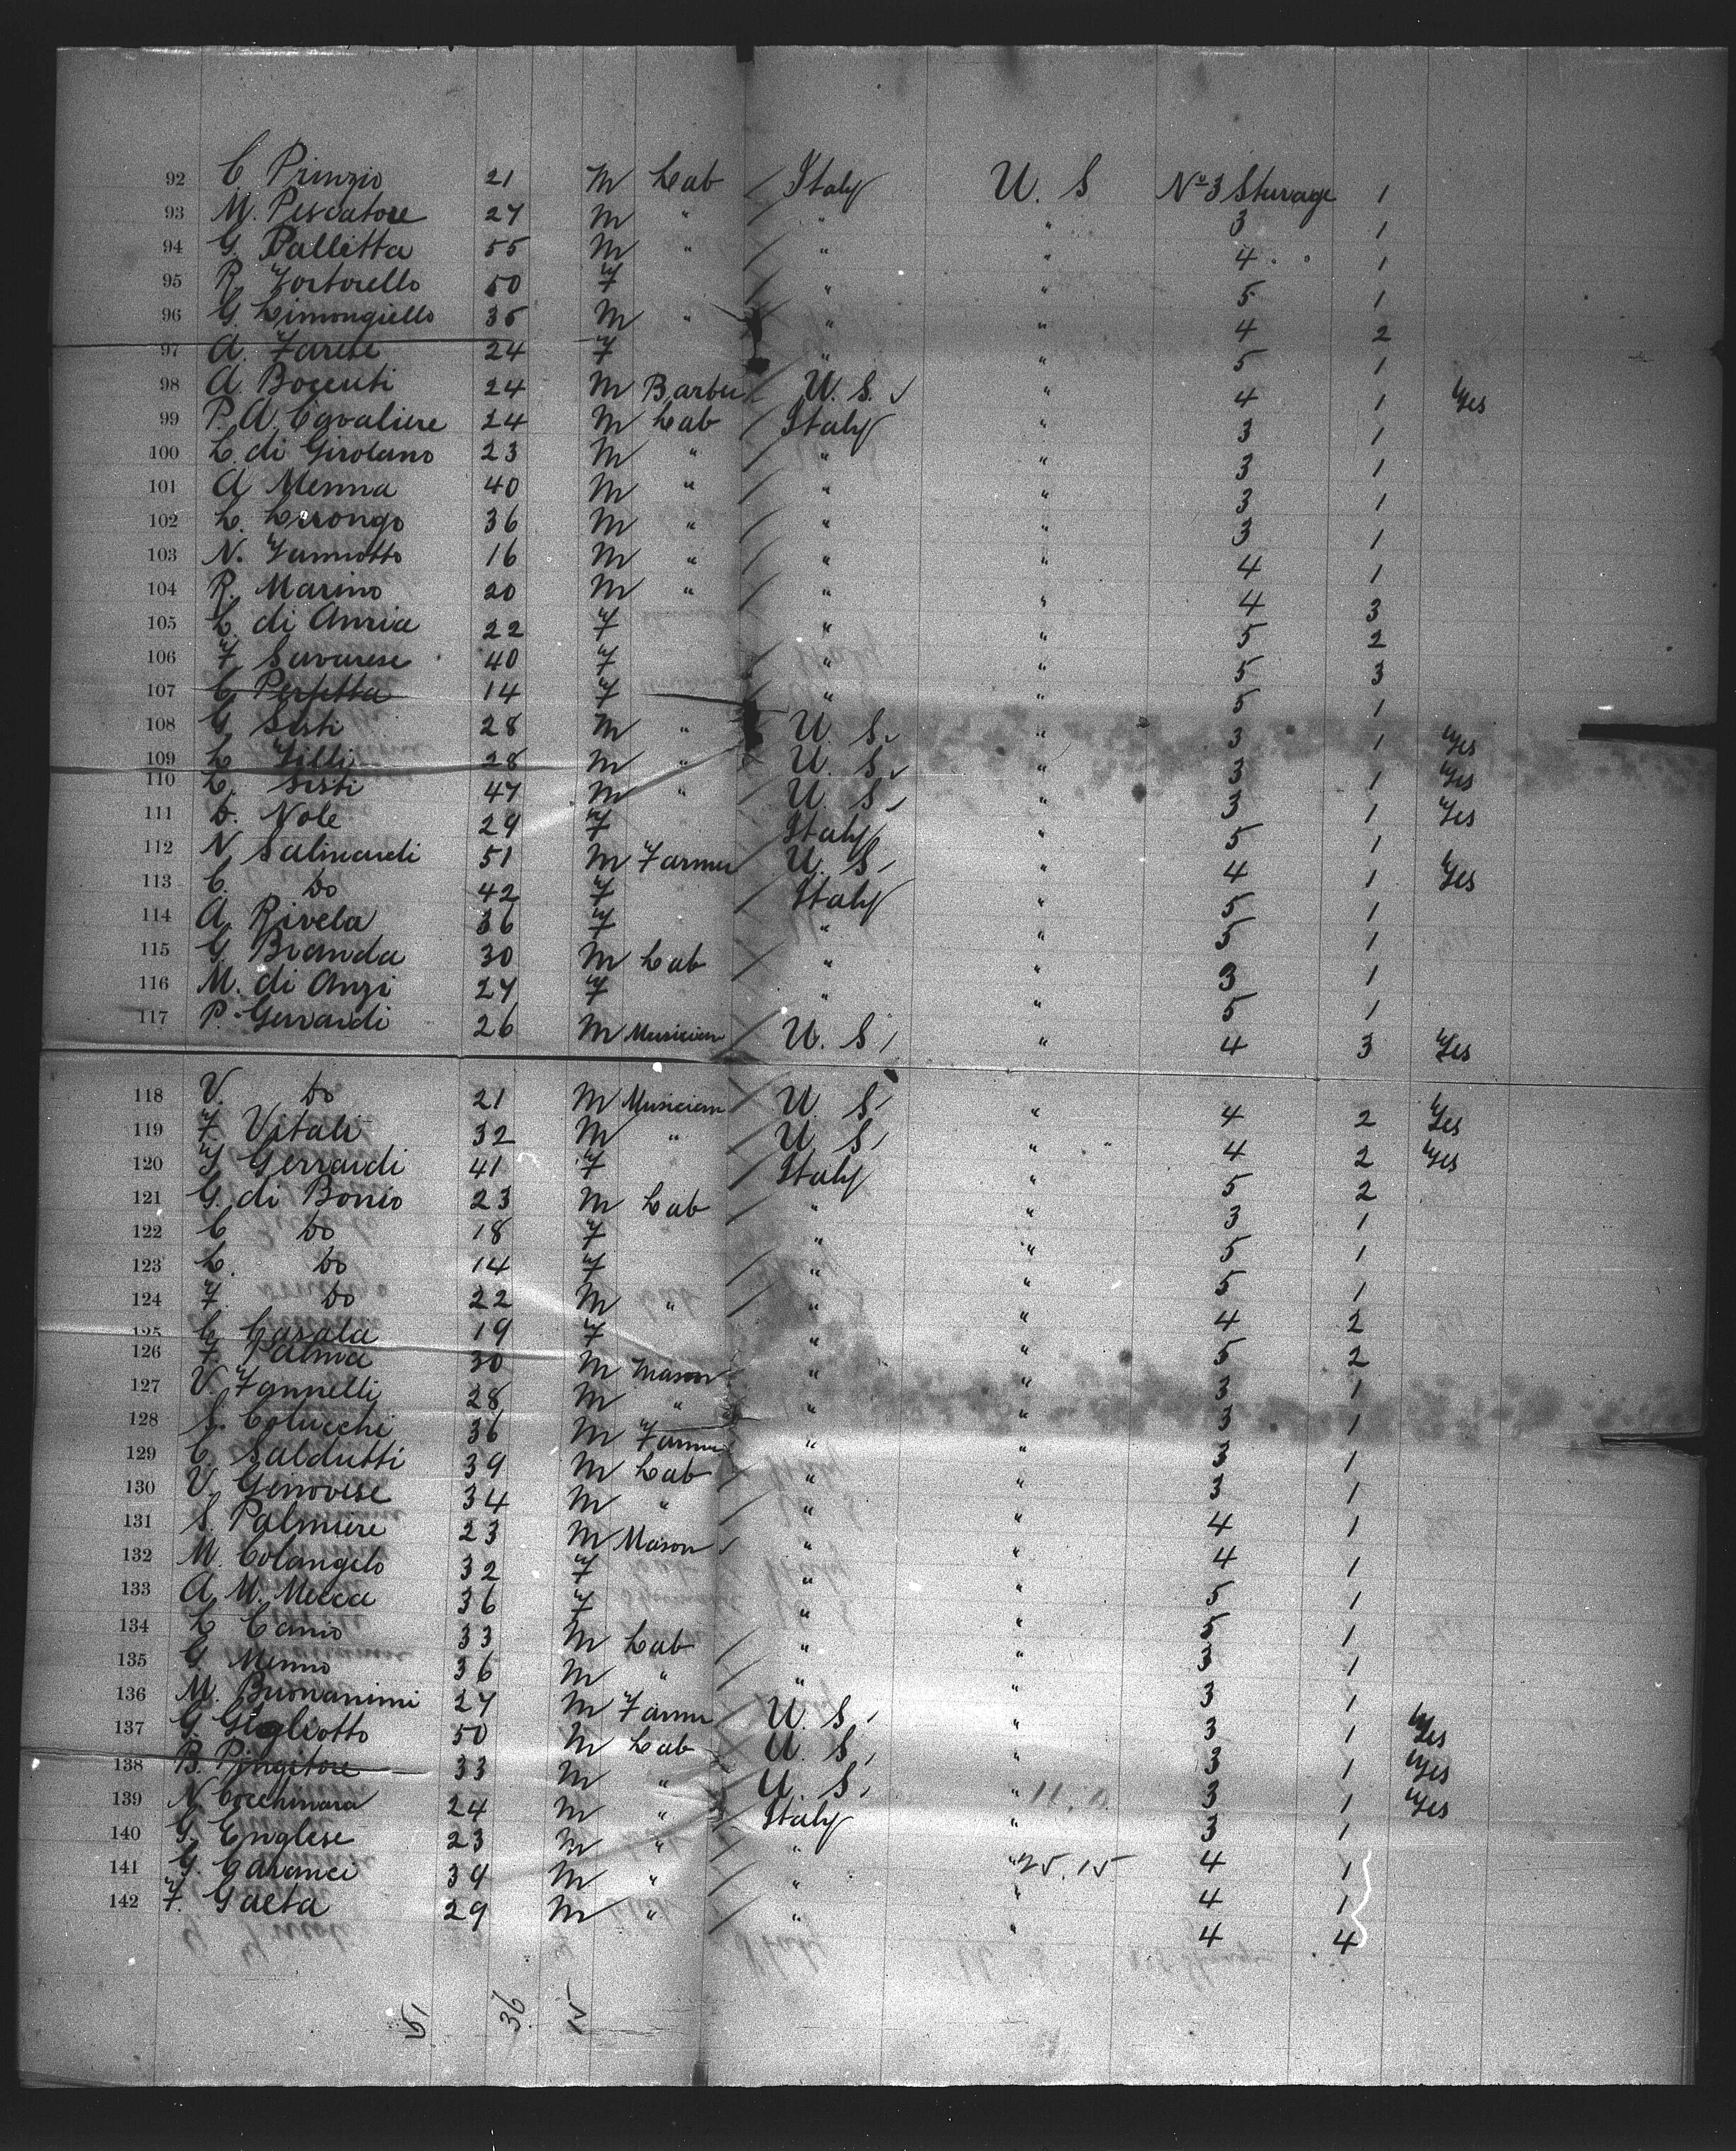 92 C. Prinzio 21 M Lab / Italy U. S No 3 Sturage 1
93 M. Pescatore 27 M " / " " 3 1
94 G. Palletta 55 M " / " " 4 1
95 R. Tortorello 50 F / " " 5 1
96 G. Limongiello 35 M " " " 4 2
97 A. Farese 24 F " " 5 1
98 A. Boccuti 24 M Barber / U. S. " 4 1 Yes
99 P. A. Cavaliere 24 M Lab / Italy " 3 1
100 L. di Girolano 23 M " / " " 3 1
101 A Menna 40 M " / " " 3 1
102 L. Lerongo 36 M " / " " 3 1
103 N. 16 M " / " " 4 1
104 R. Marino 20 M " / " " 4 3
105 L. di Auria 22 F / " " 5 2
106 F. Savarese 40 F / " " 5 3
107 C. Perfetta 14 F " " 5 1
108 G. Sisti 28 M " U. S. " 3 1 Yes
109 L. Filli 28 M " U. S. " 3 1 Yes
110 L. Sisti 47 M " / U. S. " 3 1 Yes
111 D. Nole 29 F / Italy " 5 1
112 N Salinardi 51 M Farmer / U. S. " 4 1 Yes
113 C. Do 42 F / Italy " 5 1
114 A. Rivela 36 F " " 5 1
115 G. Branda 30 M Lab / " " 3 1
116 M. di Anzi 27 F " " 5 1
117 P. Gerrardi 26 M Musician / U. S. " 4 3 Yes
118 V. Do 21 M Musician / U. S. " 4 2 Yes
119 F. Vitali 32 M " / U. S. " 4 2 Yes
120 Gerrardi 41 F / Italy " 5 2
121 G. di Bonio 23 M Lab / " " 3 1
122 C Do 18 F / " " 5 1
123 L. Do 14 F / " " 5 1
124 F. Do 22 M " / " " 4 2
125 C. Casala 19 F " " 5 2
126 F. Palma 30 M Mason " " 3 1
127 V. Iannelli 28 M " " " 3 1
128 S. Colucchi 36 M Farmer " " 3 1
129 C. Saldutti 39 M Lab / " " 3 1
130 V. Genovese 34 M " / " " 4 1
131 S. Palmiere 23 M Mason / " " 4 1
132 M. Colangelo 32 F " " 5 1
133 A. M. Mecca 36 F " " 5 1
134 L Canio 33 M Lab / " " 3 1
135 G Menno 36 M " / " " 3 1
136 M. Buonanimi 27 M Farmer U. S. " 3 1 Yes
137 G. Gigliotto 50 M Lab U. S. " 3 1 Yes
138 B. Pingitore 33 M " U. S. " 3 1 Yes
139 N Cocchinara 24 M " Italy " 3 1
140 G. Englese 23 M " / " " 4 1
141 G. Caranci 39 M " / " " 4 1
142 F. Gaeta 29 M " / " " 4 4
51 36 15